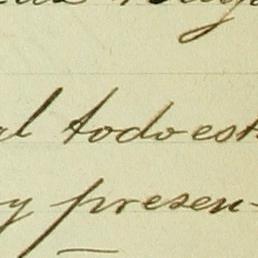 al todo est
y presen-